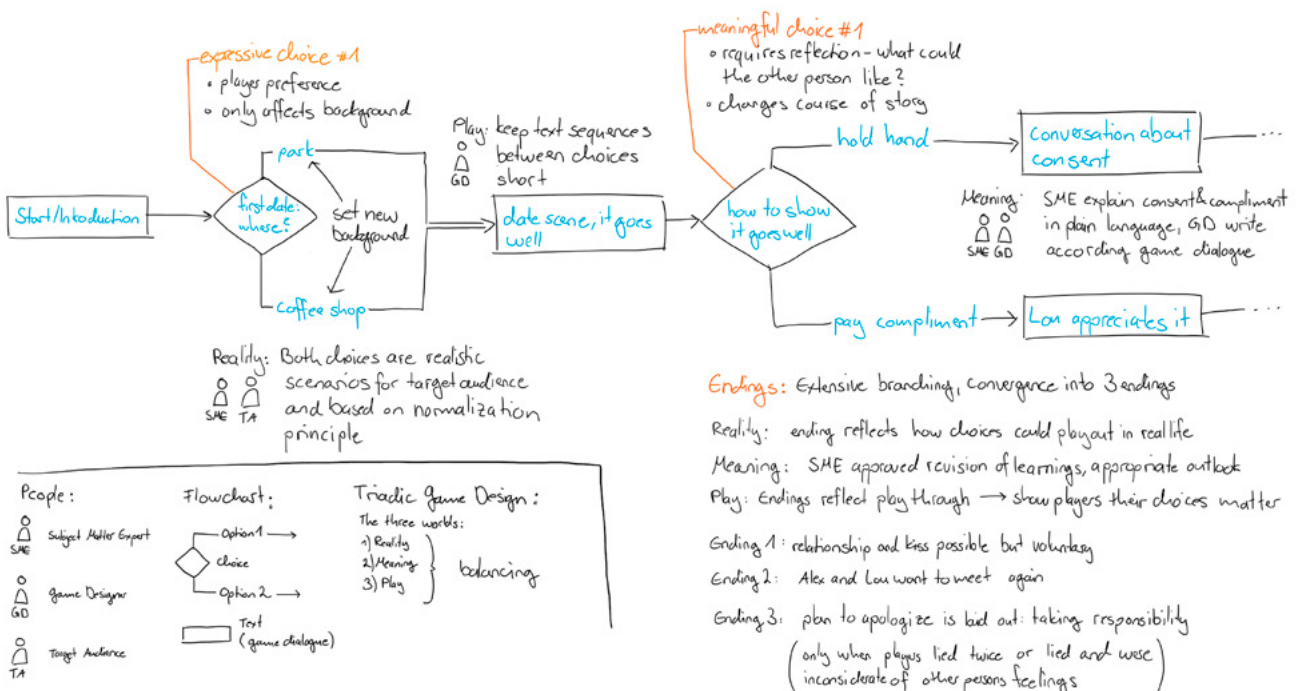 expressive choice #1
• player preference
• only affects background
meaningful choice #1
• requires reflection – what could
the other person like?
• changes course of story
Start/Introduction
first date:
where?
park
set new
background
coffee shop
Play: keep text sequences
between choices
short
GD
date scene, it goes
well
how to show
it goes well
hold hand
Conversation about
consent
...
Meaning: SME explain consent & compliment
in plain language, GD write
according game dialogue
SME GD
pay compliment
Lou appreciates it
...
Reality: Both choices are realistic
scenarios for target audience
and based on normalization
principle
SME TA
Endings: Extensive branching, convergence into 3 endings
Reality: ending reflects how choices could play out in real life
Meaning: SME approved revision of learnings, appropriate outlook
Play: Endings reflect play through → show players their choices matter
Ending 1: relationship and kiss possible but voluntary
Ending 2: Alex and Lou want to meet again
Ending 3: plan to apologize is laid out: taking responsibility
(only when players lied twice or lied and were
inconsiderate of other persons feelings)
People:
SME Subject Matter Expert
GD Game Designer
TA Target Audience
Flowchart:
Option 1
choice
Option 2
Text
(game dialogue)
Triadic Game Design:
The three worlds:
1) Reality
2) Meaning
3) Play
balancing